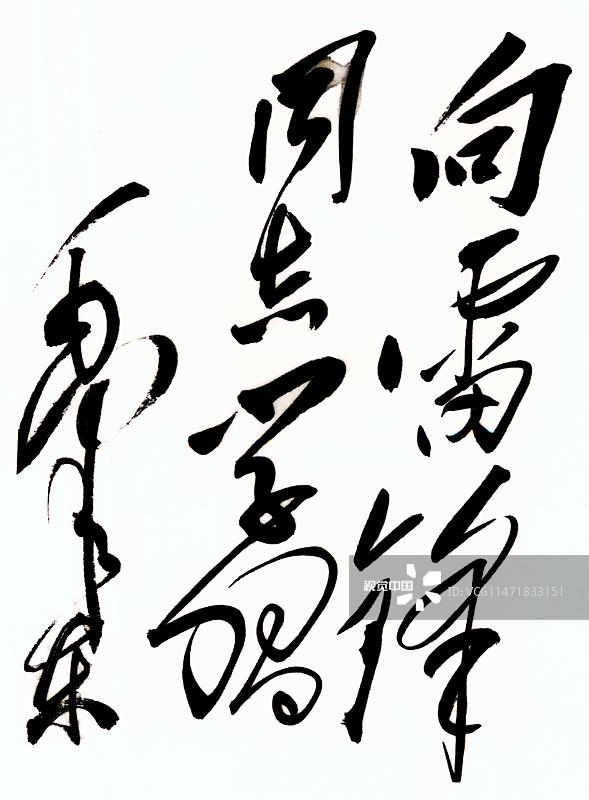 向雷锋
同志学习
毛泽东
视觉中国
ID:VCG11471833151